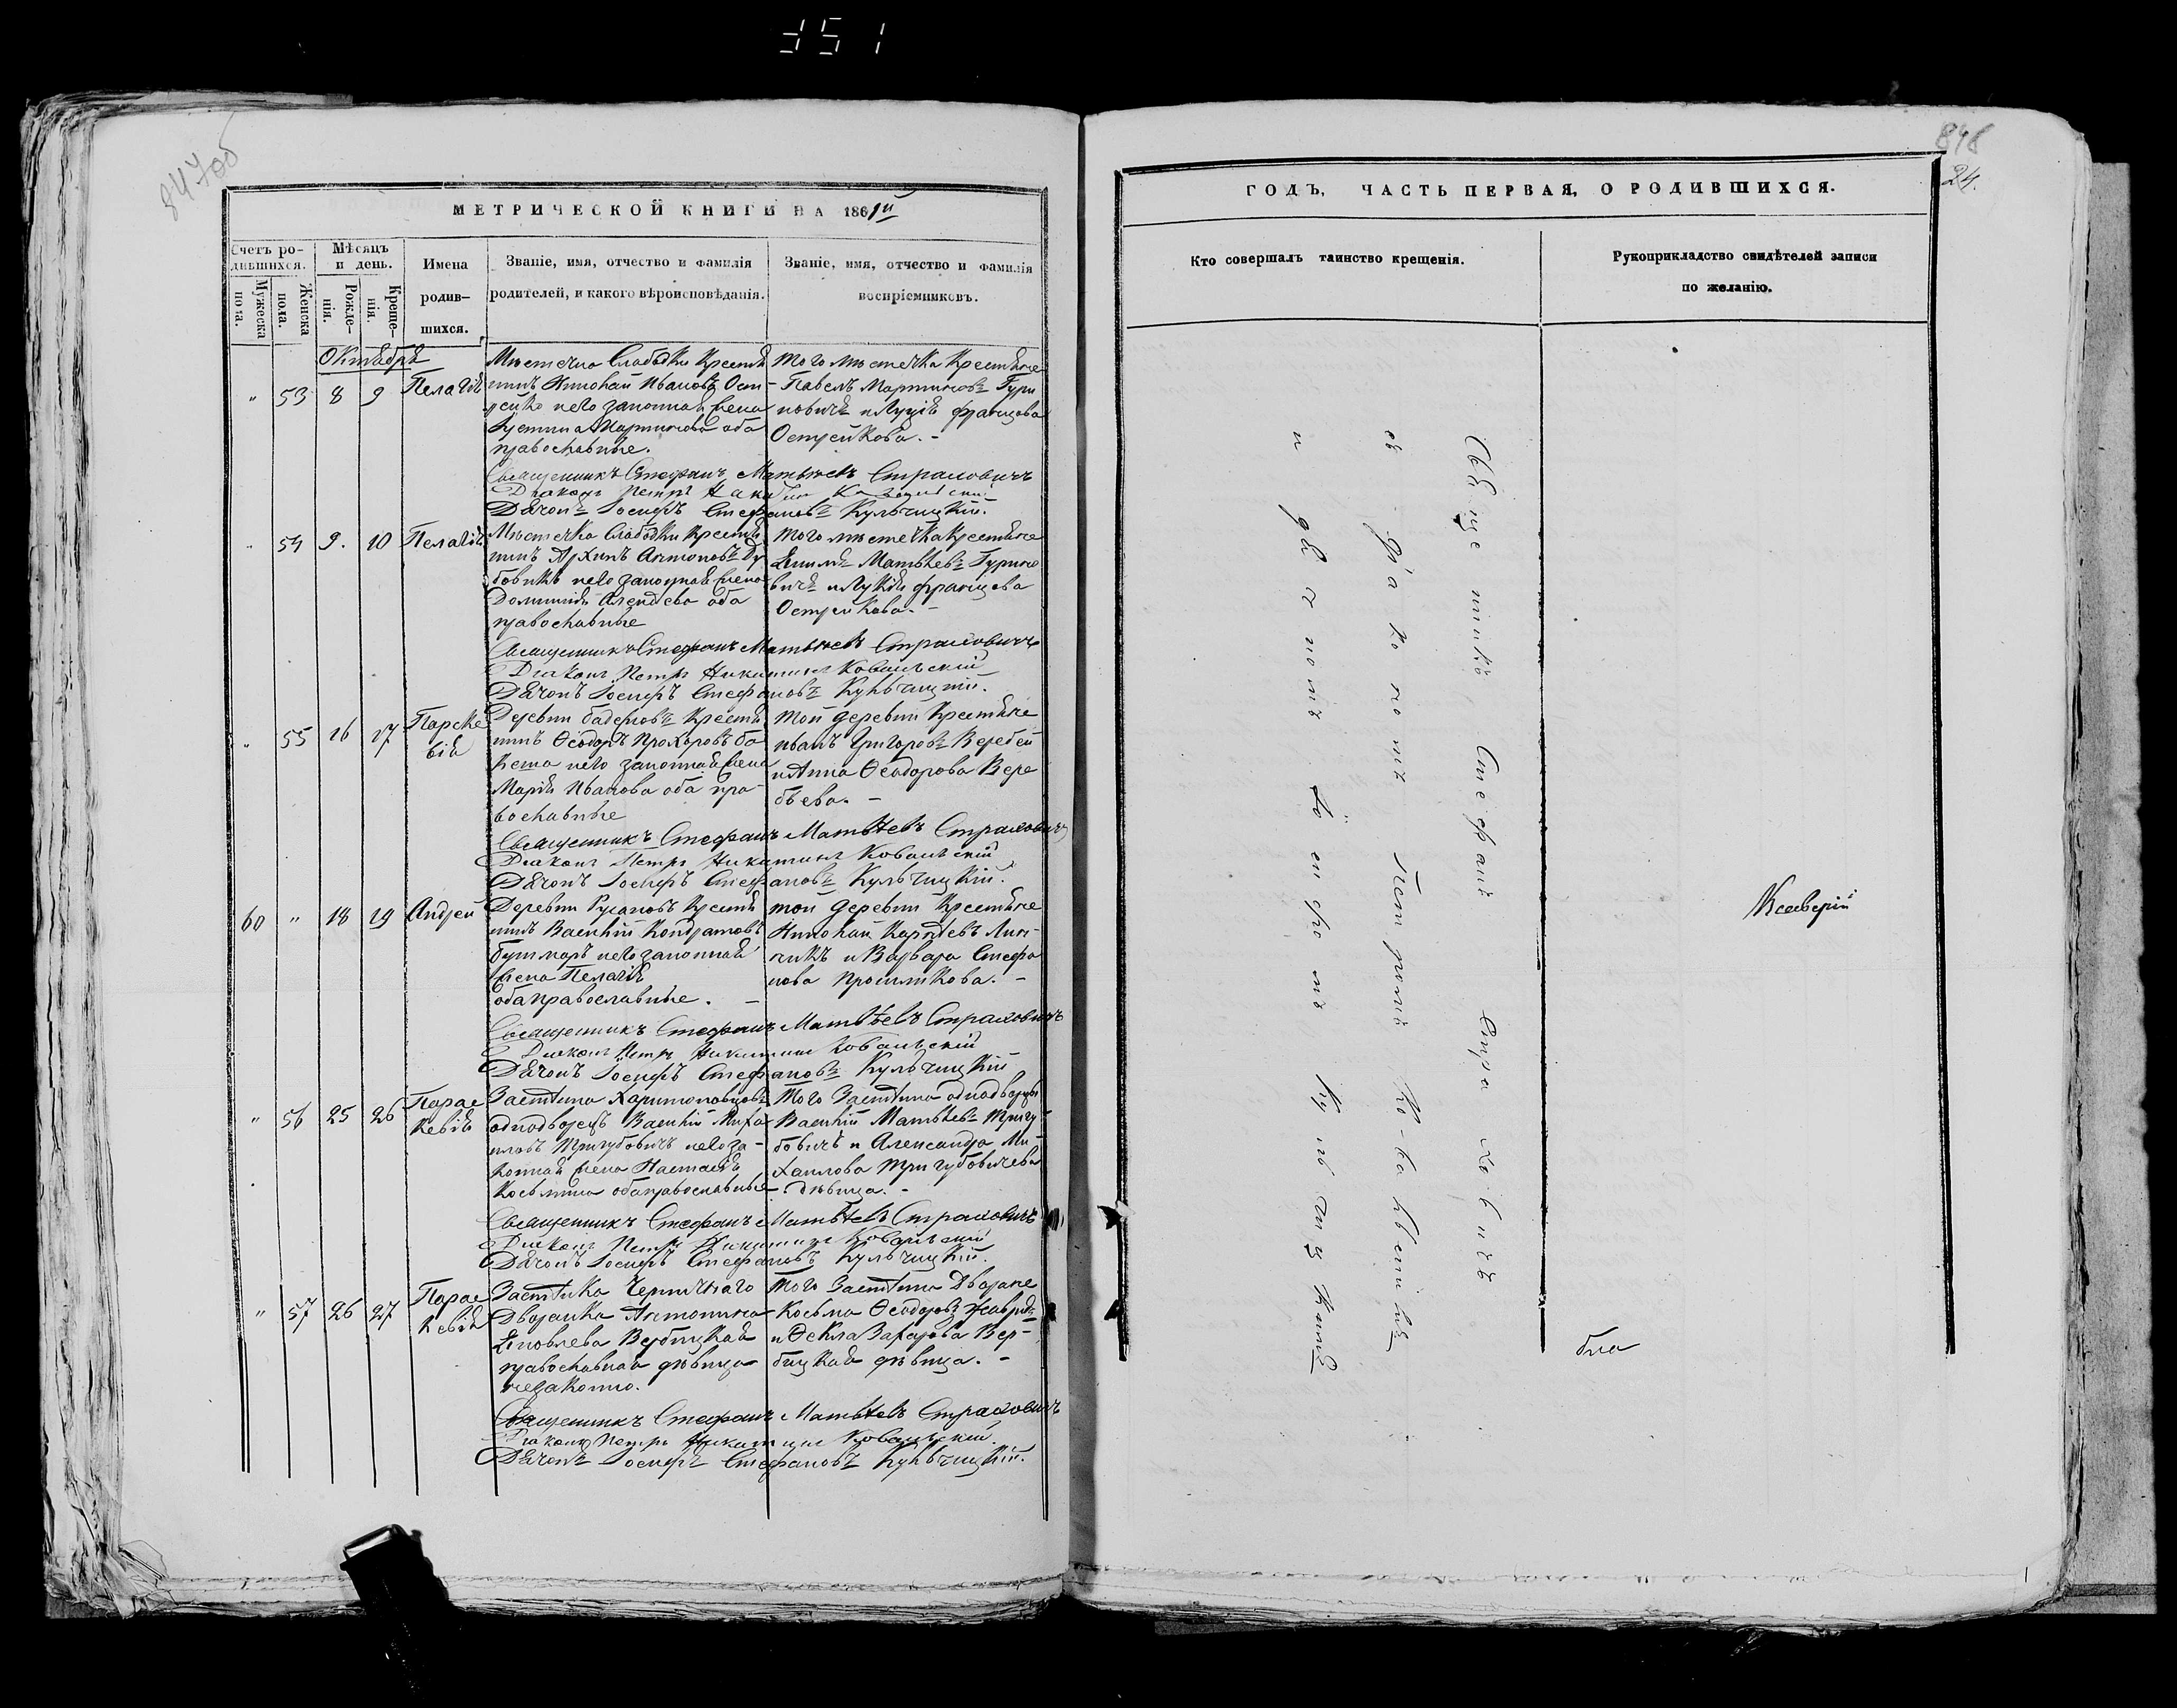 351
847 об
МЕТРИЧЕСКОЙ КНИГИ НА 1861й
Счетъ ро-
дившихся.
Мужеска
пола.
Женска
пола.
Мѣсяцъ
и день.
Рожде-
нія.
Креще-
нія.
Имена
родив-
шихся.
Званіе, имя, отчество и фамилія
родителей, и какого вѣроисповѣданія.
Званіе, имя, отчество и фамилія
воспріемниковъ.
Октября
" 53 8 9 Пелагія
Мѣстечка Слабодки Крестья
нинъ Николай Ивановъ Ост-
рейко и его законная жена
Мартинова оба
православные.
того мѣстечка Крестьяне
Павелъ Мартиновъ Гури
новичъ и Луція францова
Острейкова. -
Священникъ Стефанъ Матѣевъ Страховичъ
Діаконъ Петръ
Дячокъ Іосифъ Стефановъ Кульчицкій.
" 54 9. 10 Пелагія
Мѣстечка Слабодки Крестья
нинъ Архипъ Антоновъ Ду
бовикъ и его законная жена
оба
православные
того мѣстечка Крестьяне
Матвѣевъ Гурино
вичъ и Лукія францова
Острейкова. -
Священникъ Стефанъ Матѣевъ Страховичъ
Діаконъ Петръ Никитинъ Ковальскій
Дячокъ Іосифъ Стефановъ Кульчицкій.
" 55 16 17 Параске
вія
Деревни Крестья
нинъ Ѳеодоръ Прохоровъ
и его законная жена
Марія Иванова оба пра-
вославные
той деревни Крестьяне
Иванъ Григоровъ Веребей
и Анна Ѳеодорова Вере
бьева. -
Священникъ Стефанъ Матѣевъ Страховичъ
Діаконъ Петръ Никитинъ Ковальскій
Дячокъ Іосифъ Стефановъ Кульчицкій.
60 " 18 19 Андрей
Деревни Крестья
нинъ Василій Кондратовъ
и его законная
жена Пелагія
оба православные. -
той деревни Крестьяне
Николай
и Варвара Стефа
нова -
Священникъ Стефанъ Матѣевъ Страховичъ
Діаконъ Петръ Никитинъ Ковальскій
Дячокъ Іосифъ Стефановъ Кульчицкій
" 56 25 26 Парас
кевія
Застѣнка Харитоновцовъ
однодворецъ Василій Миха
иловъ Тригубовичъ и его за-
конная жена Настасія
Косьмина оба православные
того Застѣнка однодворцы
Василій Матвѣевъ Тригу-
бовичъ и Александра Ми-
хаилова Тригубовичева
дѣвица. -
Священникъ Стефанъ Матѣевъ Страховичъ
Діаконъ Петръ Никитинъ Ковальскій
Дячокъ Іосифъ Стефановъ Кульчицкій.
" 57 26 27 Парас
кевія
Застѣнка
Дворянка Антонина
Яковлева Вербицкая
православная дѣвица
незаконно.
того Застѣнка Дворяне
Косьма Ѳеодоровъ
и Ѳекла Захарова Вер-
бицкая дѣвица. -
Священникъ Стефанъ Матѣевъ Страховичъ
Діаконъ Петръ Никитинъ Ковальскій.
Дячокъ Іосифъ Стефановъ Кульчицкій.
848
24.
ГОДЪ, ЧАСТЬ ПЕРВАЯ, О РОДИВШИХСЯ.
Кто совершалъ таинство крещенія.
Рукоприкладство свидѣтелей записи
по желанію.
Священникъ Стефанъ Страховичъ
съ Діакономъ Петромъ Ковальскимъ
и дячкомъ Іосифомъ Кульчицкимъ